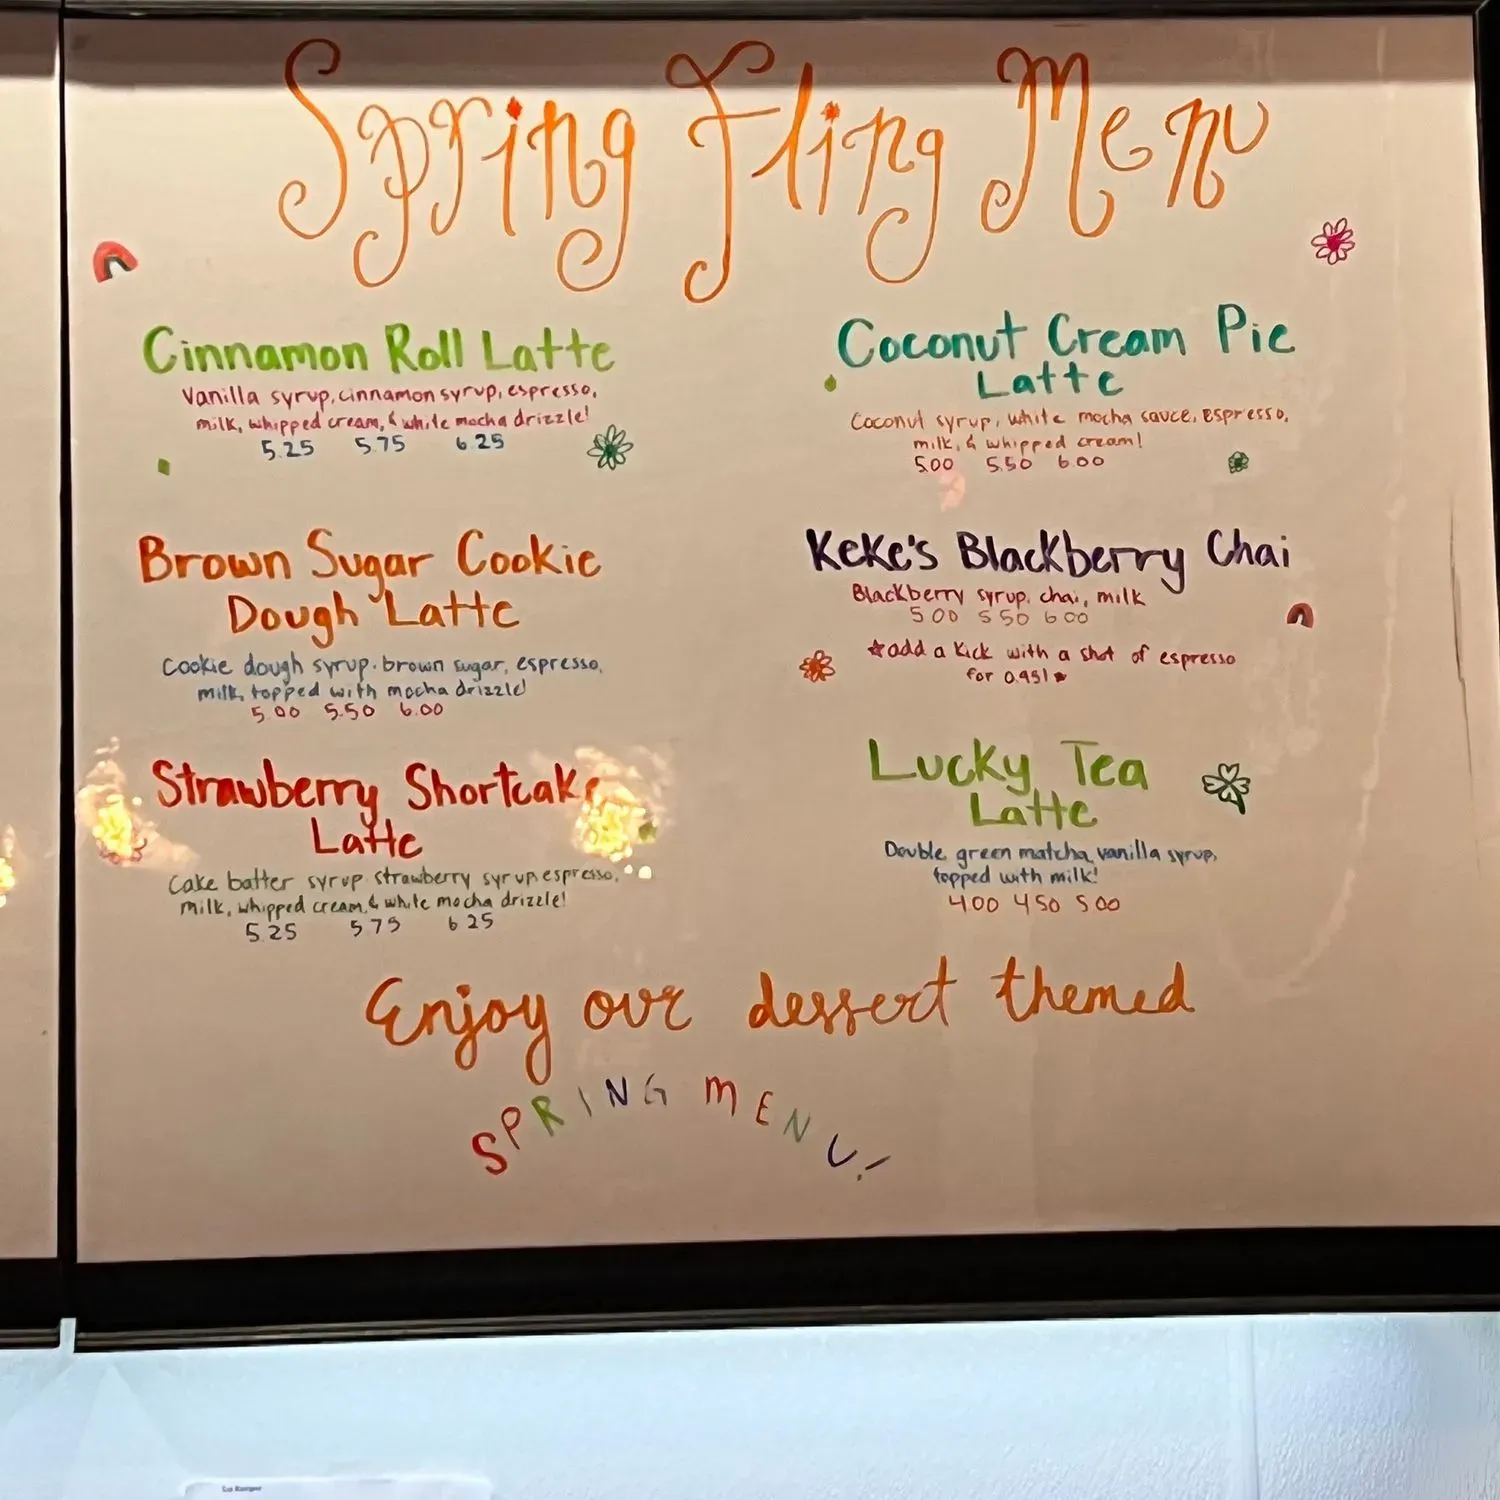 Spring Fling Menu
Cinnamon Roll Latte
Vanilla syrup, cinnamon syrup, espresso,
milk, whipped cream, & white mocha drizzle!
5.25 5.75 6.25
Brown Sugar Cookie
Dough Latte
Cookie dough syrup, brown sugar, espresso,
milk, topped with mocha drizzle!
5.00 5.50 6.00
Strawberry Shortcake
Latte
Cake batter syrup, strawberry syrup, espresso,
milk, whipped cream, & white mocha drizzle!
5.25 5.75 6.25
Coconut Cream Pie
Latte
Coconut syrup, white mocha sauce, espresso,
milk, & whipped cream!
5.00 5.50 6.00
KeKe's Blackberry Chai
Blackberry syrup, chai, milk
5.00 5.50 6.00
*add a kick with a shot of espresso
for 0.95!*
Lucky Tea
Latte
Double green matcha, vanilla syrup,
topped with milk!
4.00 4.50 5.00
Enjoy our dessert themed
SPRING MENU!